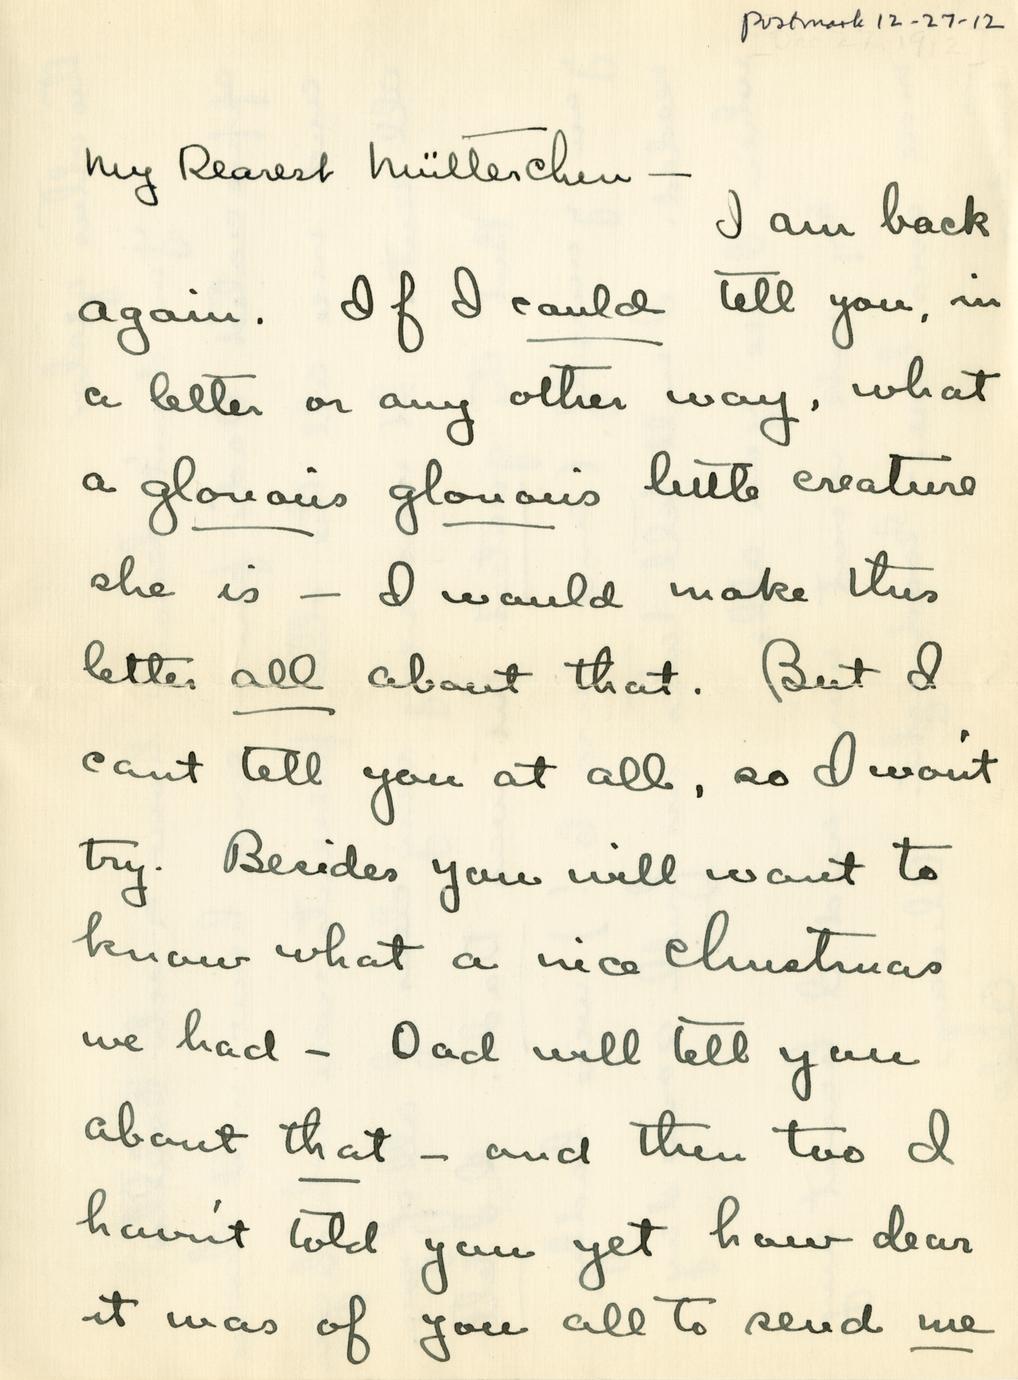 Postmark 12-27-12
My Dearest Mütterchen —
I am back
again. If I could tell you, in
a letter or any other way, what
a glorious glorious little creature
she is — I would make this
letter all about that. But I
cant tell you at all, so I won't
try. Besides you will want to
know what a nice Christmas
we had – Dad will tell you
about that – and then too I
havn't told you yet how dear
it was of you all to send me